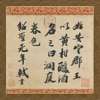 始安定郡王
以黄柑釀酒
名之曰洞庭
春色
紹聖元年